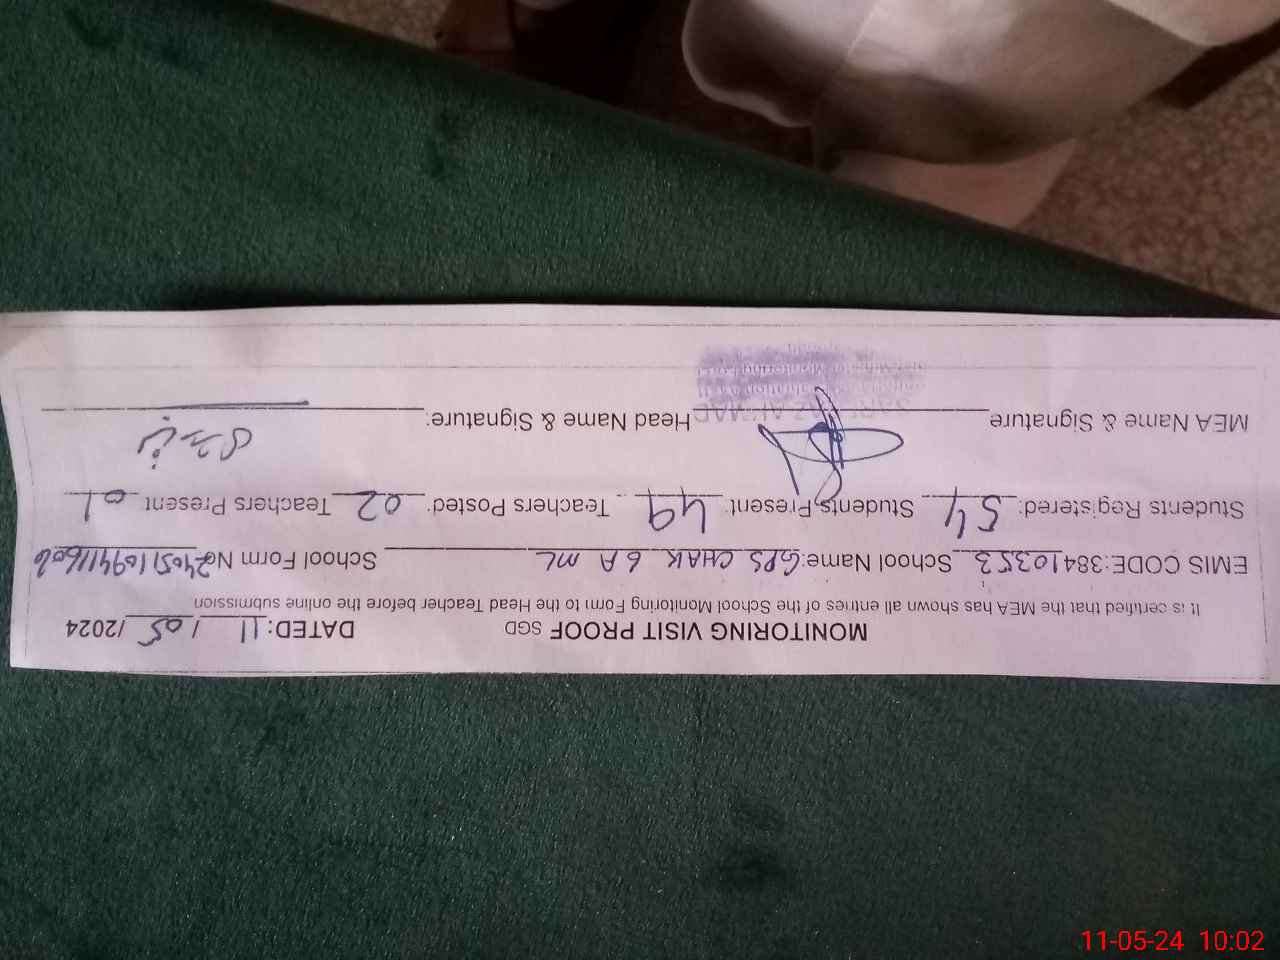 MONITORING VISIT PROOF SGD DATED: 11 / 05 /2024
It is certified that the MEA has shown all entries of the School Monitoring Form to the Head Teacher before the online submission
EMIS CODE:38410353 School Name: GPS CHAK 6 A ML School Form No
Students Registered: 54 Students Present: 49 Teachers Posted: 02 Teachers Present 01
MEA Name & Signature Head Name & Signature:
11-05-24 10:02